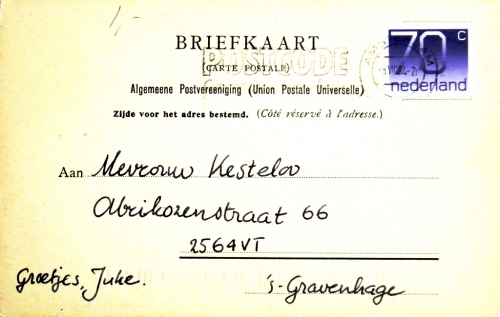 1,-
BRIEFKAART
(CARTE POSTALE)
POSTCODE
70 c
nederland
Algemeene Postvereeniging (Union Postale Universelle)
Zijde voor het adres bestemd. (Côté réservé à l'adresse.)
Aan Mevrouw Kesteloo
Abrikozenstraat 66
2564VT
Groetjes, Juke.
's-Gravenhage